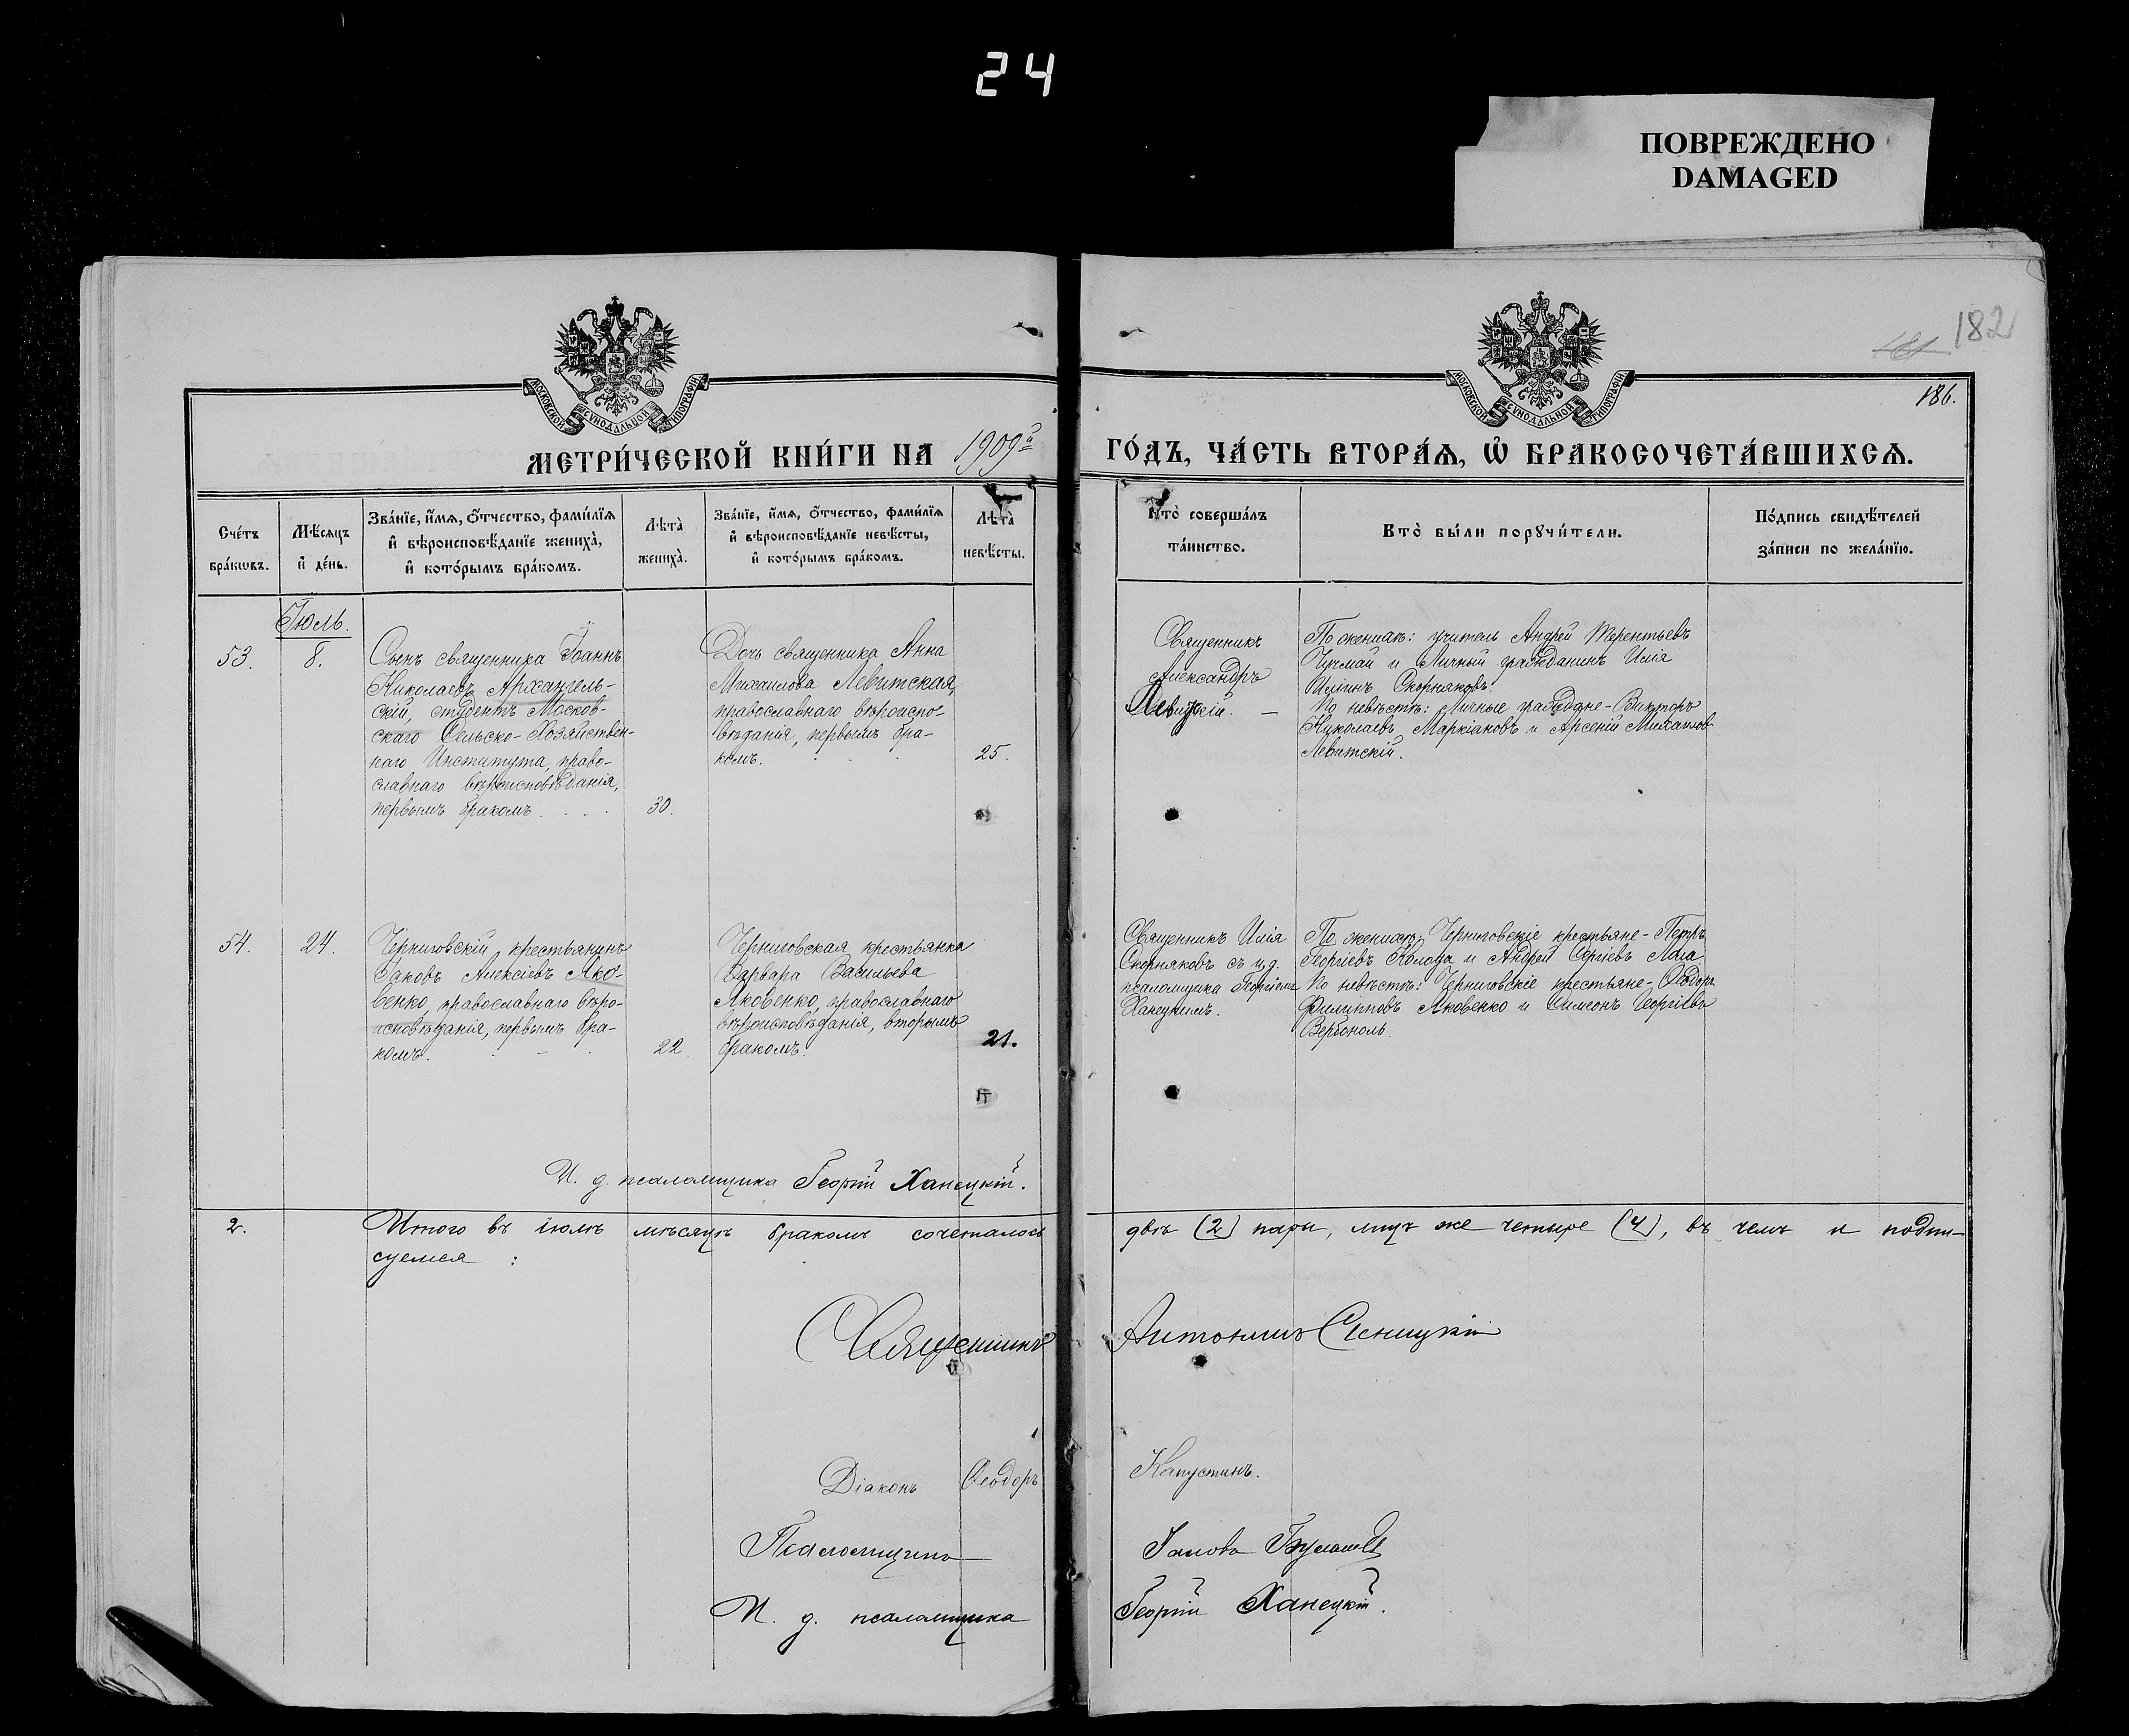 24
ПОВРЕЖДЕНО
DAMAGED
182
186.
МОСКОВСКОЙ СУНОДАЛЬНОЙ ТИПОГРАФІИ
МОСКОВСКОЙ СУНОДАЛЬНОЙ ТИПОГРАФІИ
МЕТРИ́ЧЕСКОЙ КНИ́ГИ НА 1909й ГО́ДЪ, ЧА́СТЬ ВТОРА́Ѧ, Ѡ҆ БРАКОСОЧЕТА́ВШИХСѦ.
Сче́тъ
бра́кѡвъ.
Мѣ́сѧцъ
и҆ де́нь.
Зва́нїе, и҆́мѧ, ѻ҆́тчество, фами́лїѧ
и҆ вѣроисповѣ́данїе жениха̀,
и҆ кото́рымъ бра́комъ.
Лѣ́та̀
жениха̀.
Зва́нїе, и҆́мѧ, ѻ҆́тчество, фами́лїѧ
и҆ вѣроисповѣ́данїе невѣ́сты,
и҆ кото́рымъ бра́комъ.
Лѣ́та̀
невѣ́сты.
Кто̀ соверша́лъ
та́инство.
Кто̀ бы́ли порꙋчи́тели.
По́дпись свидѣ́телей
за́писи по жела́нїю.
Іюль.
53.
8.
Сынъ священника Іоаннъ
Николаевъ Архангель-
скій, студентъ Москов-
скаго Сельско-Хозяйствен-
наго Института, право-
славнаго вѣроисповѣданія,
первымъ бракомъ.
30.
Дочь священника Анна
Михаилова Левитская,
православнаго вѣроиспо-
вѣданія, первымъ бра-
комъ.
25.
Священникъ
Александръ
Левитскій. —
По женихѣ: учитель Андрей Терентьевъ
Чучмай и Личный гражданинъ Илія
Иліинъ Скорняковъ.
По невѣстѣ: Личные граждане - Викторъ
Николаевъ Маркіановъ и Арсеній Михаилов
Левитскій.
54.
24.
Черниговскій крестьянинъ
Іаковъ Алексіевъ Яко-
венко, православнаго вѣро-
исповѣданія, первымъ бра-
комъ.
22.
Черниговская крестьянка
Варвара Васильева
Яковенко, православнаго
вѣроисповѣданія, вторымъ
бракомъ.
21.
Священникъ Илія
Скорняковъ съ и.д.
псаломщика Георгіемъ
Ханецкимъ.
По женихѣ: Черниговскіе крестьяне - Петръ
Георгіевъ Колода и Андрей Сергіевъ
По невѣстѣ: Черниговскіе крестьяне - Ѳеодоръ
Филипповъ Яковенко и Симеонъ Георгіевъ
Вербоноль.
И. д. псаломщика Георгій Ханецкій.
2.
Итого въ іюлѣ мѣсяцѣ бракомъ сочеталось двѣ (2) пары, лицъ же четыре (4), въ чемъ и подпи-
суемся :
Священникъ Антонинъ Сѣницкій
Діаконъ Ѳеодоръ Капустинъ.
Псаломщикъ Іаковъ
И. д. псаломщика Георгій Ханецкій.